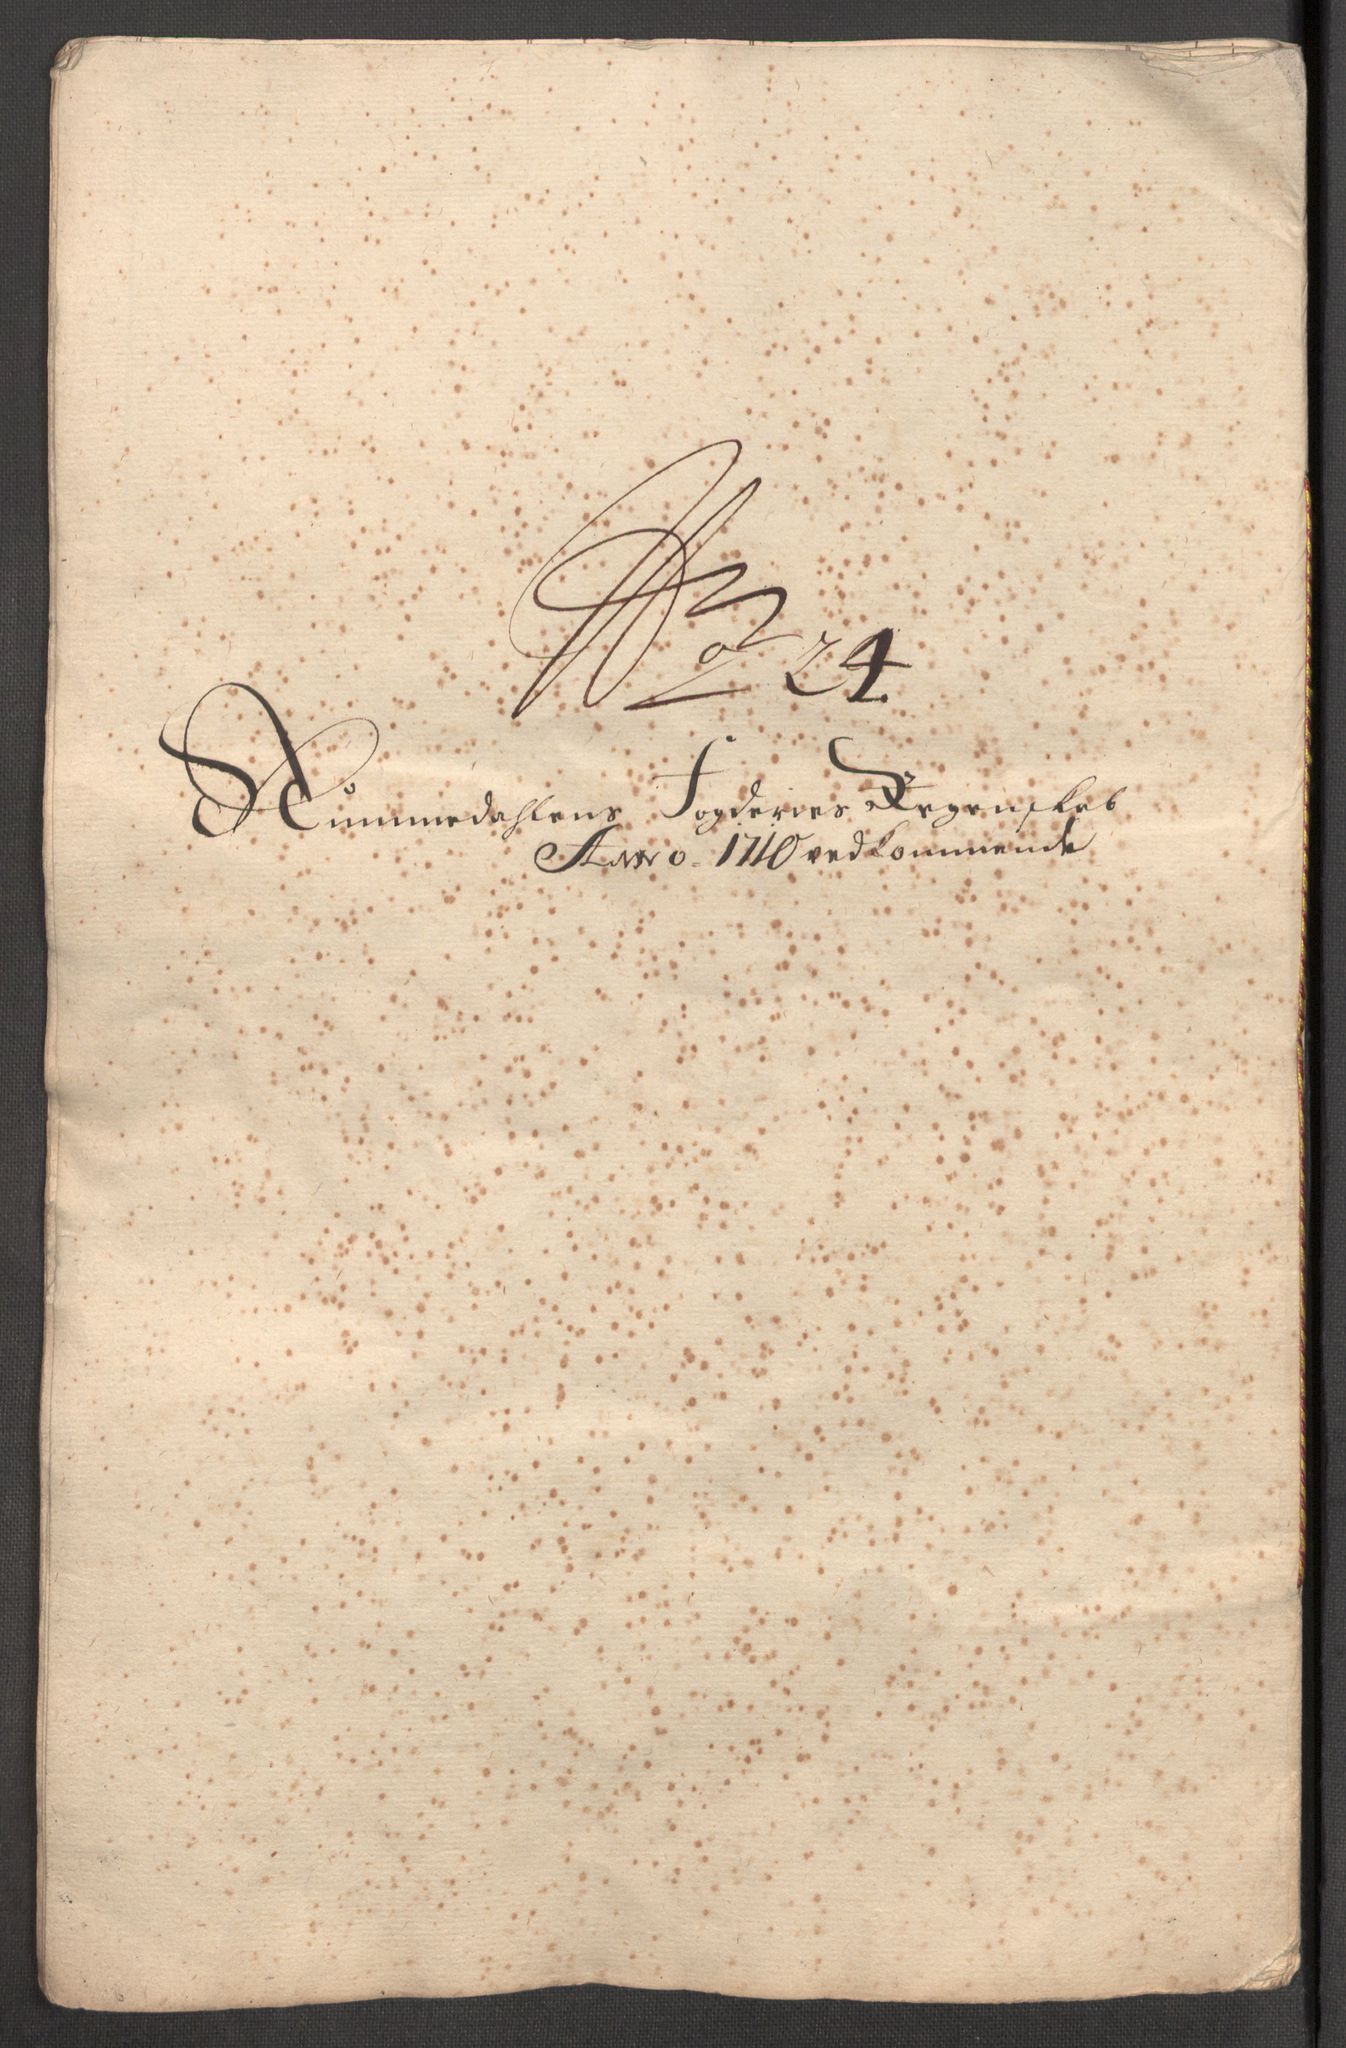 No 24
Nummedahlens Fogderies Regenskab
Anno 1710 vedkommende